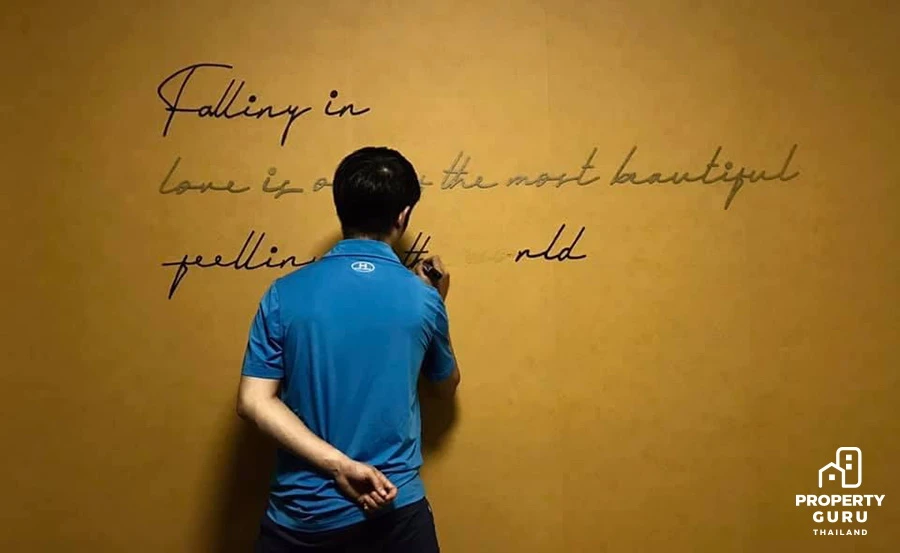 Falliny in
love is the most beautiful
feellin th rld
PROPERTY
GURU
THAILAND